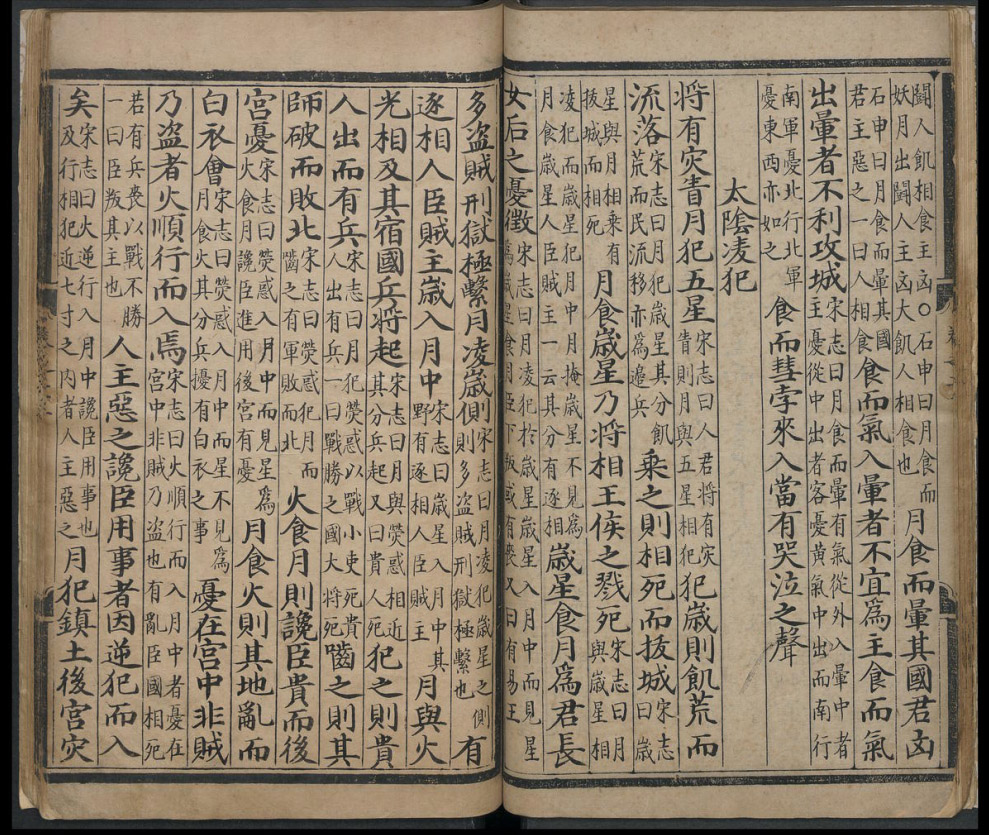 鬭人飢相食主凶〇石申曰月食而妖月出鬭人主凶大飢人相食也月食而暈其國君凶
石申曰月食而暈其國君主惡之一曰人相食食而氣入暈者不宜為主食而氣
出暈者不利攻城宋志曰月食而暈有氣從外入暈中者主憂從中出者客憂黃氣中出而南行
南軍憂北行北軍憂東西亦如之食而彗孛來入當有哭泣之聲
太陰凌犯
將有灾眚月犯五星宋志曰人君將有灾眚則月與五星相犯犯歲則飢荒而
流落宋志曰月犯歲星其分飢荒而民流移亦為邉兵乘之則相死而拔城宋志曰歲
星與月相乘有拔城而相死月食歲星乃將相王侯之戮死宋志曰月與歲星相
凌犯而歲星犯月中月掩歲星不見為月食歲星人臣賊主一云其分有逐相歲星食月為君長
女后之憂徵宋志曰月凌犯於歲星歲星入月中而見星為歲星食月臣下叛或有喪又曰有易王
多盜賊刑獄極繫月凌歲側宋志曰月凌犯歲星之側則多盜賊刑獄極繫也有
逐相人臣賊主歲入月中宋志曰歲星入月中其野有逐相人臣賊主月與火
光相及其宿國兵將起宋志曰月與熒惑相近其分兵起又曰貴人死犯之則貴
人出而有兵宋志曰月犯熒惑以戰小吏死貴人出有兵一曰戰勝之國大將死囓之則其
師破而敗北宋志曰熒惑犯月而囓之有軍敗而北火食月則讒臣貴而後
宮憂宋志曰熒惑入月中而見星為火食月讒臣進用後宮有憂月食火則其地亂而
白衣會宋志曰熒惑入月中而星不見為月食火其分兵擾有白衣之事憂在宮中非賊
乃盜者火順行而入焉宋志曰火順行而入月中者憂在宮中非賊乃盜也有亂臣國相死
若有兵喪以戰不勝一曰臣叛其主也人主惡之讒臣用事者因逆犯而入
矣宋志曰火逆行入月中讒臣用事也及行相犯近七寸之內者人主惡之月犯鎮土後宮灾